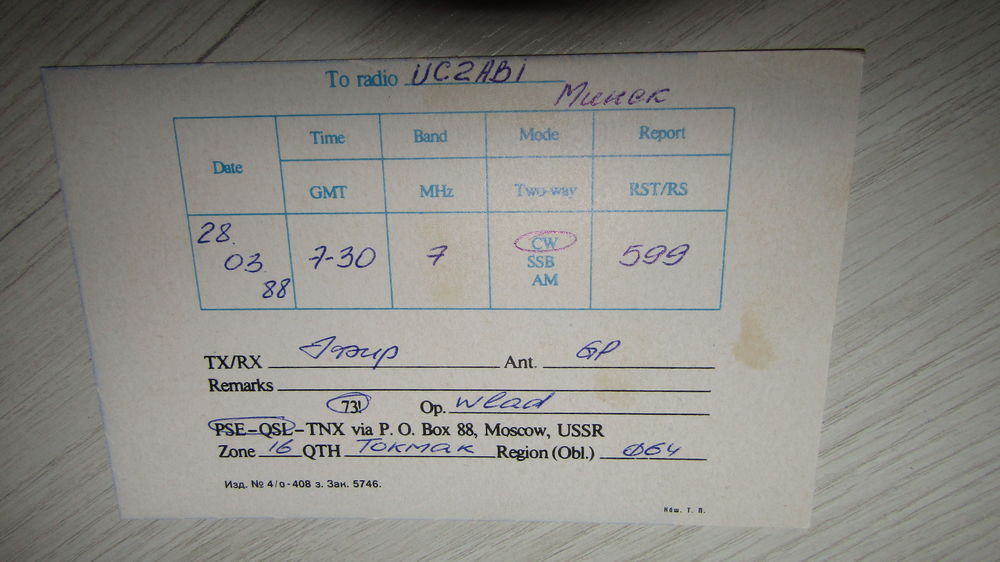 To radio UC2ABI
Минск
Date Time Band Mode Report
GMT MHz Two-way RST/RS
28. 03. 88 7-30 7 CW 599
SSB
AM
TX/RX Ant. GP
Remarks
73! Op. Wlad
PSE–QSL–TNX via P. O. Box 88, Moscow, USSR
Zone 16 QTH Токмак Region (Obl.) Ø64
Изд. № 4/о-408 з. Зак. 5746.